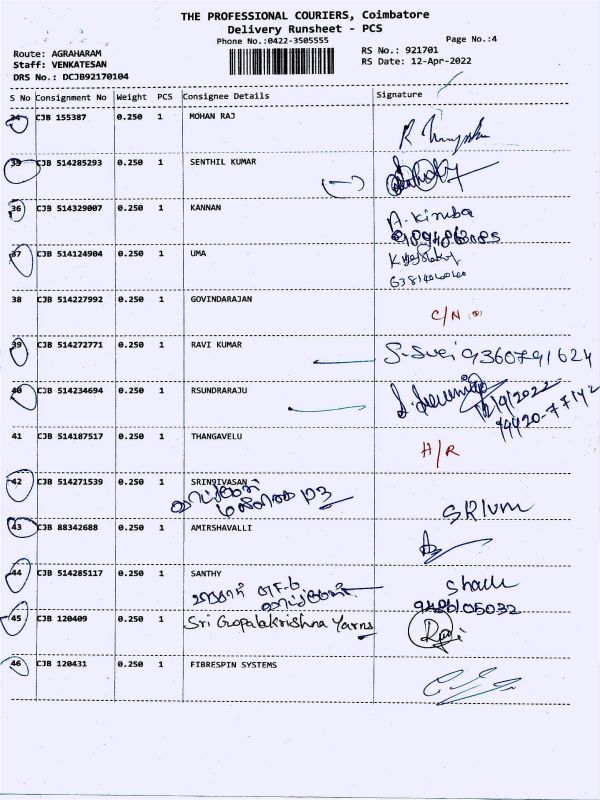 THE PROFESSIONAL COURIERS, Coimbatore
Delivery Runsheet - PCS
Phone No.:0422-3505555
Page No.:4
Route: AGRAHARAM
RS No.: 921701
Staff: VENKATESAN
RS Date: 12-Apr-2022
DRS No.: DCJB92170104
S No Consignment No Weight PCS Consignee Details Signature
34 CJB 155387 0.250 1 MOHAN RAJ
35 CJB 514285293 0.250 1 SENTHIL KUMAR
36 CJB 514329007 0.250 1 KANNAN A. Kiruba
37 CJB 514124904 0.250 1 UMA
38 CJB 514227992 0.250 1 GOVINDARAJAN C/N
39 CJB 514272771 0.250 1 RAVI KUMAR 9360791624
40 CJB 514234694 0.250 1 RSUNDRARAJU
12/4/2022
94420-77142
41 CJB 514187517 0.250 1 THANGAVELU H/R
42 CJB 514271539 0.250 1 SRINIVASAN
43 CJB 88342688 0.250 1 AMIRSHAVALLI
44 CJB 514285117 0.250 1 SANTHY
45 CJB 120409 0.250 1 Sri Gopalakrishna Yarns Ravi
46 CJB 120431 0.250 1 FIBRESPIN SYSTEMS